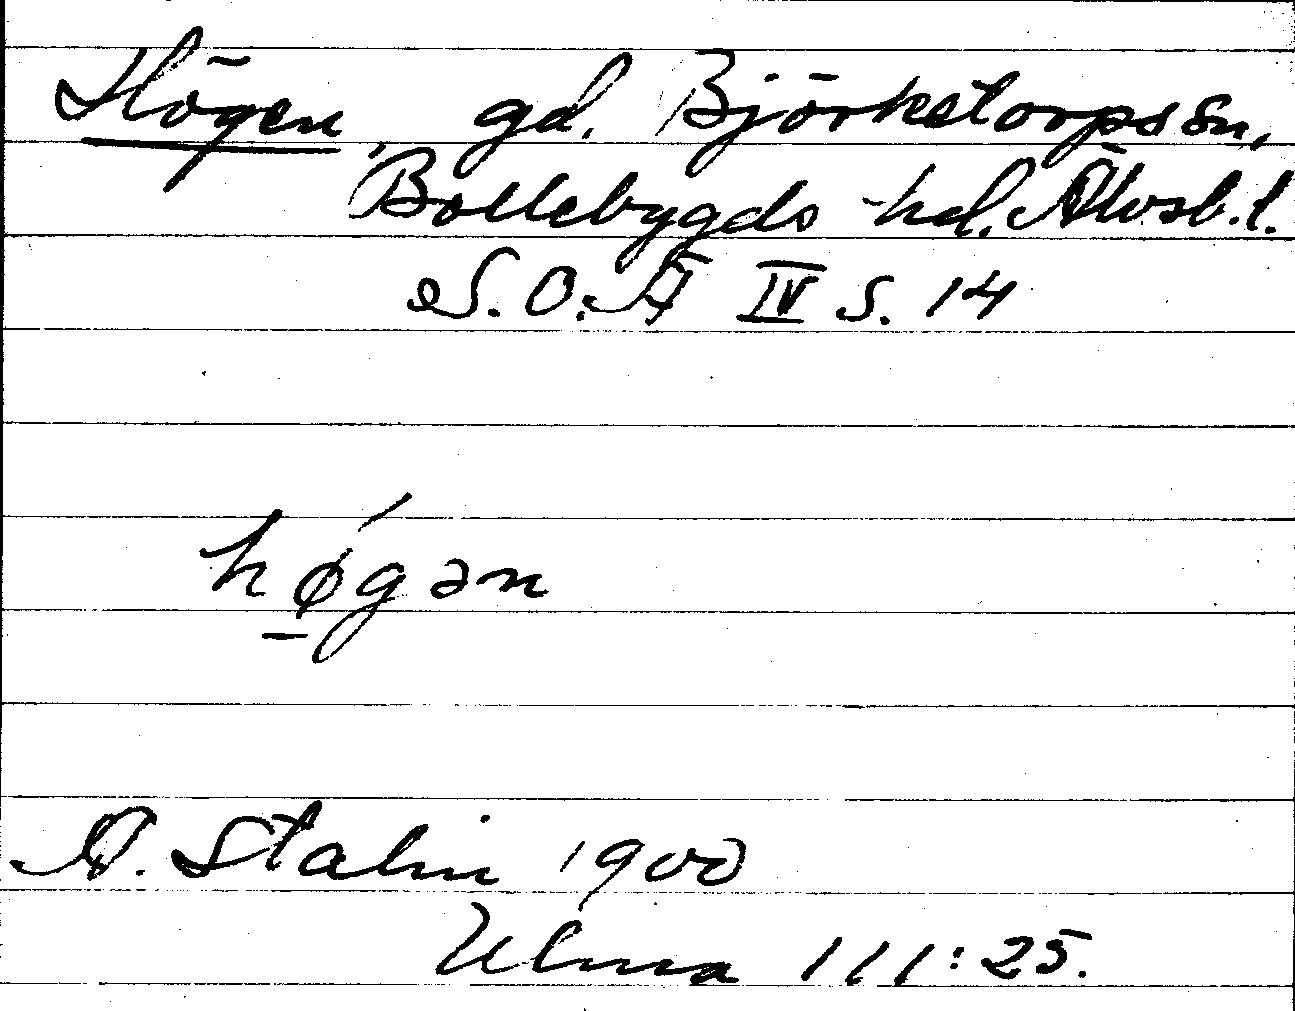 Högen, gd. Björketorps sn,
Bollebygds hd. Älvsb. l.
S.O.Ä IV S. 14
hø̱gǝn
A. Stalin 1900
Ulma 111:25.